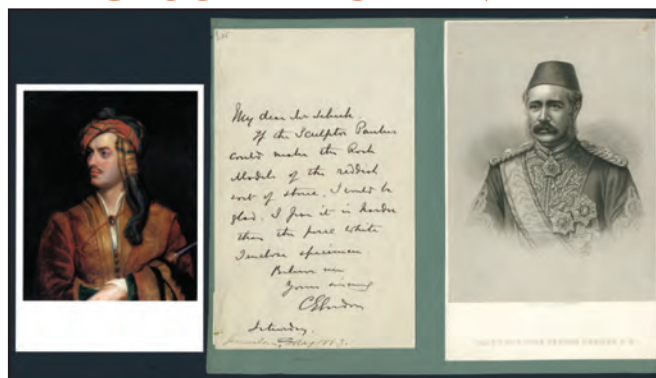 My dear Mr Schick
If the Sculptor Paulus
could make the Rock
Models of the reddish
sort of stone. I would be
glad. I fear it is harder
than the pure white
I enclose specimen
Believe me
Yours
CEGordon
Saturday.